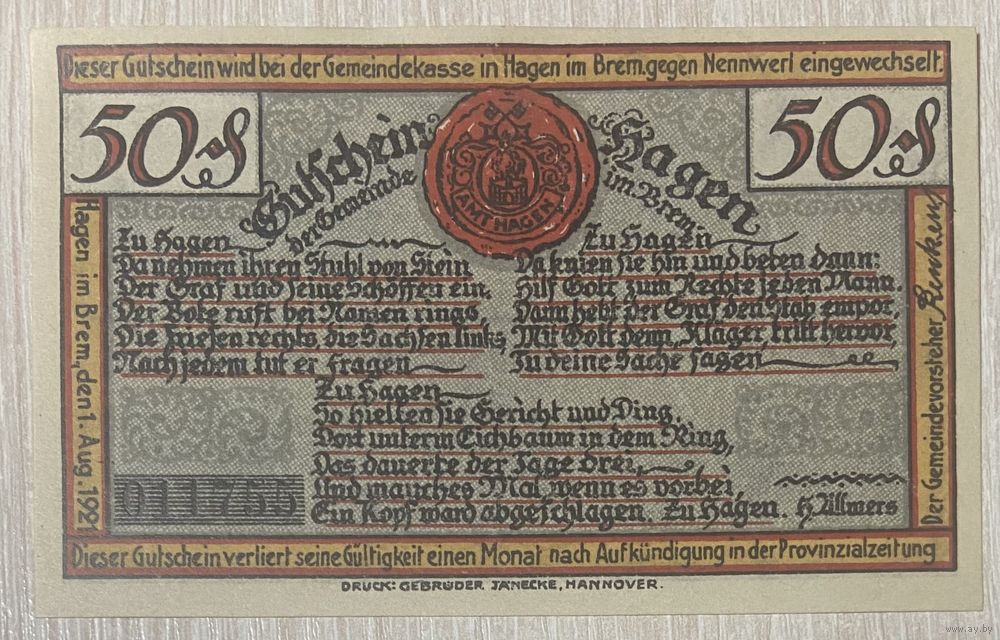 Dieser Gutschein wird bei der Gemeindekasse in Hagen im Brem. gegen Nennwert eingewechselt.
50 ₰
50 ₰
Gutschein
der Gemeinde
Hagen
im Brem.
AMT HAGEN
Hagen im Brem, den 1. Aug. 1921
Zu Hagen
Da nehmen ihren Stuhl von Stein
Der Graf und seine Schöffen ein.
Der Bote ruft bei Namen rings
Die Friesen rechts, die Sachsen links,
Nach jedem tut er fragen
Zu Hagen
Da knien sie hin und beten dann:
Hilf Gott zum Rechte jeden Mann.
Dann hebt der Graf den Stab empor,
Mit Gott denn, Kläger tritt hervor,
Tu deine Sache sagen
Zu Hagen
So hielten sie Gericht und Ding.
Dort unterm Eichbaum in dem Ring,
Das dauerte der Tage drei,
Und manches Mal, wenn es vorbei,
Ein Kopf ward abgeschlagen. Zu Hagen. H. Allmers
011755
Der Gemeindevorsteher
Dieser Gutschein verliert seine Gültigkeit einen Monat nach Aufkündigung in der Provinzialzeitung
DRUCK: GEBRÜDER JÄNECKE, HANNOVER.
www.ay.by